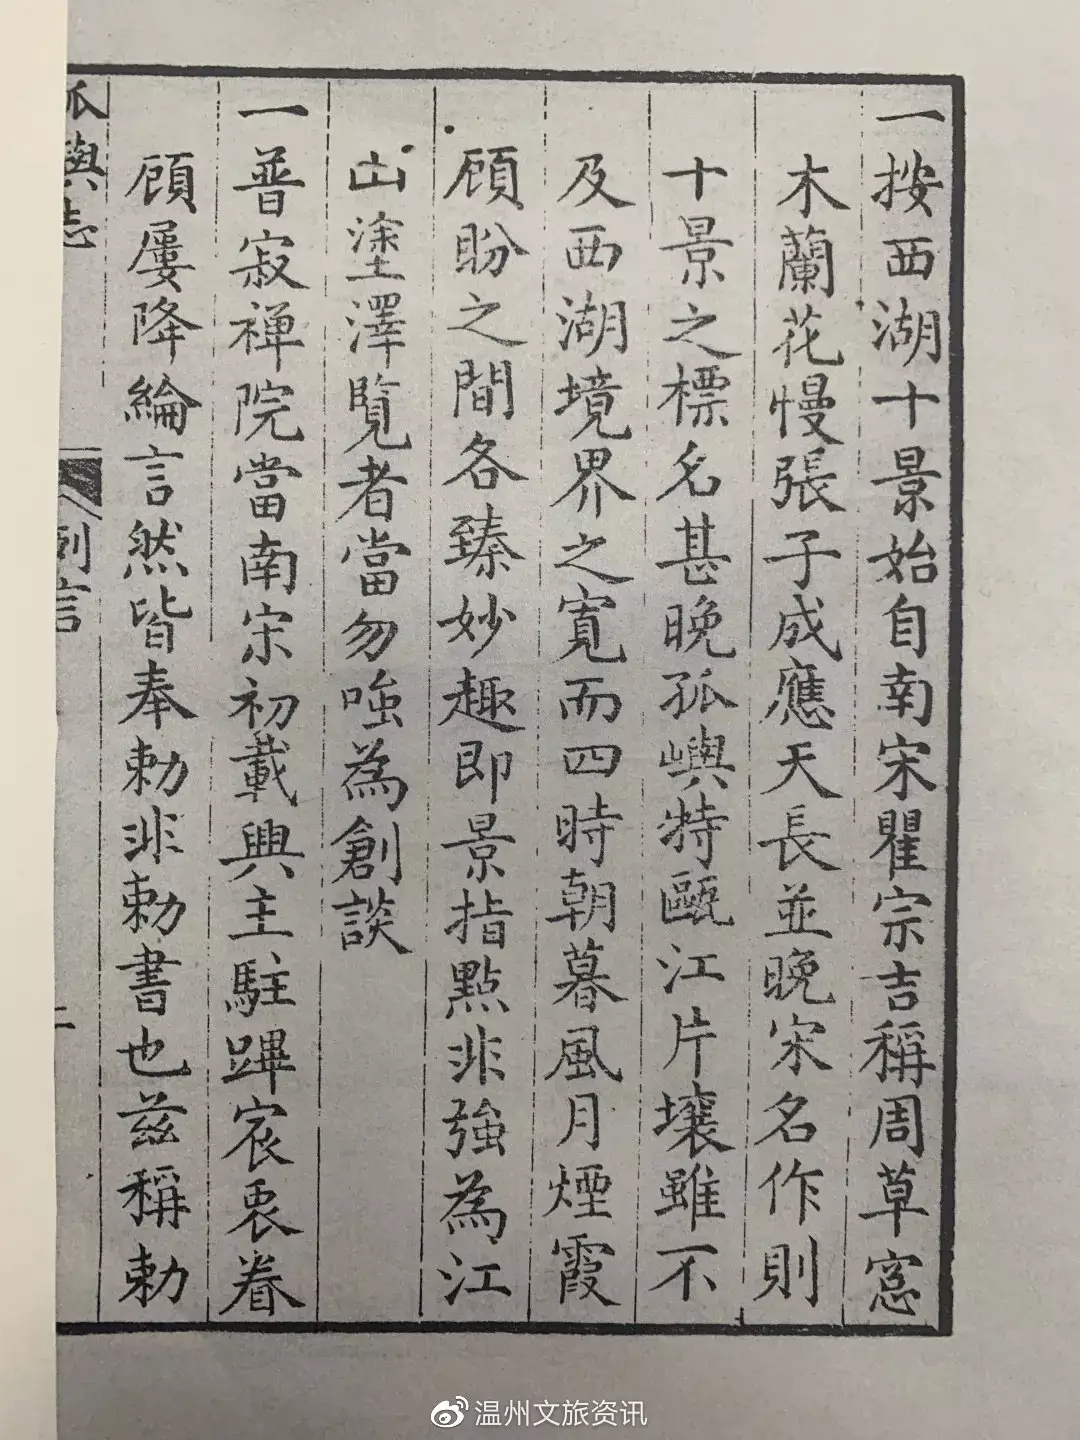 一按西湖十景始自南宋瞿宗吉稱周草窓
木蘭花慢張子成應天長並晚宋名作則
十景之標名甚晚孤嶼特甌江片壤雖不
及西湖境界之寬而四時朝暮風月煙霞
顧盼之間各臻妙趣即景指點非強為江
山塗澤覽者當勿嗤為創談
一普寂禪院當南宋初載興主駐蹕宸衷眷
顧屢降綸言然皆奉勅非勅書也茲稱勅
孤嶼志
例言
二
温州文旅资讯